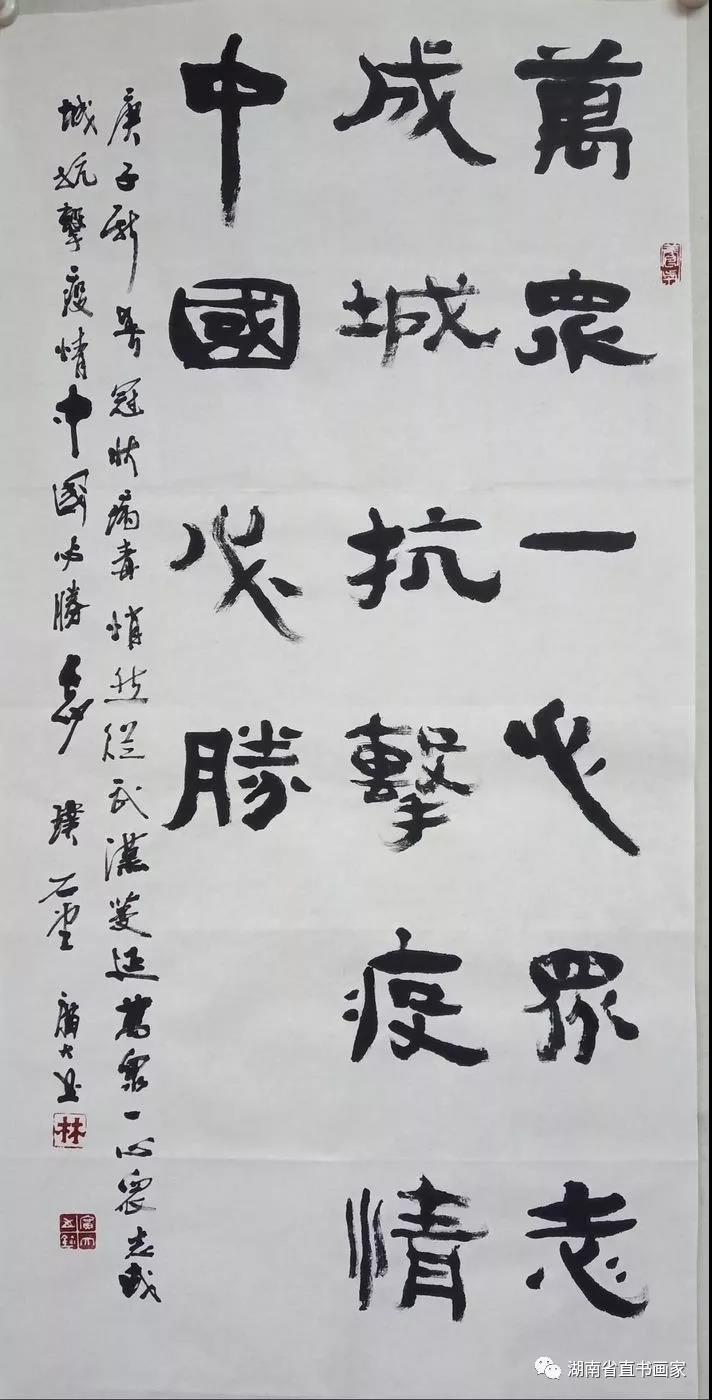 萬眾一心眾志
成城抗擊疫情
中國必勝
庚子新春冠狀病毒悄然從武漢蔓延萬衆一心衆志成
城抗擊疫情中國必勝 璞石堂
林
湖南省直书画家